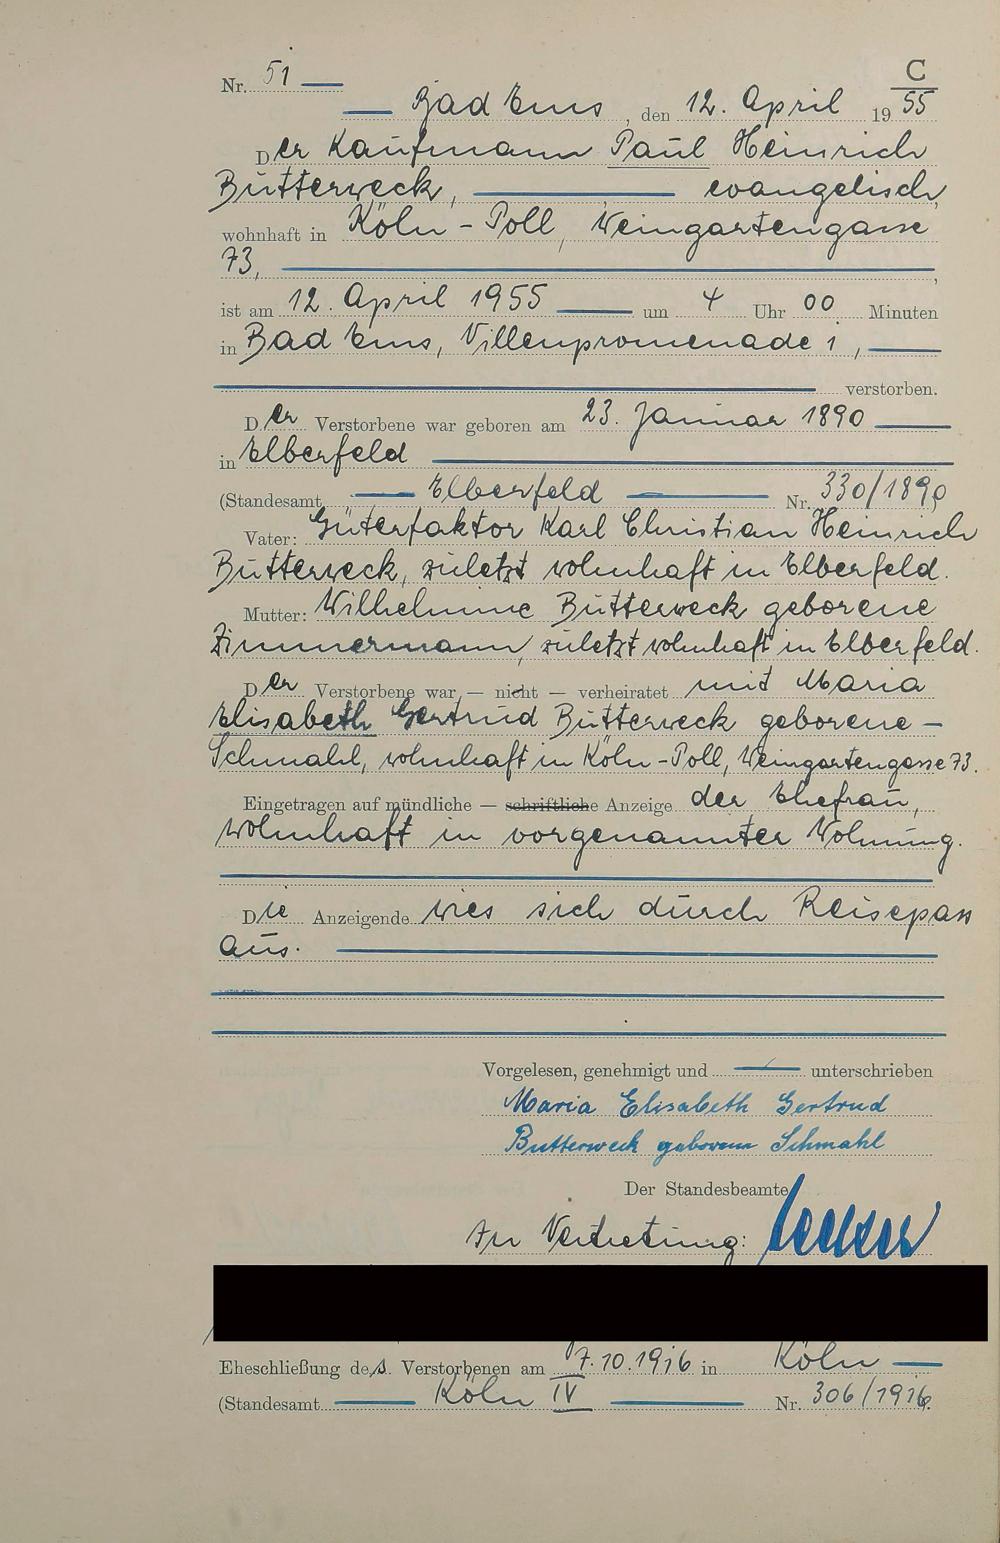 C
Nr. 51
Bad Ems, den 12. April 1955
Der Kaufmann Paul Heinrich
Butterweck, evangelisch,
wohnhaft in Köln - Poll, Weingartengasse
73,
ist am 12. April 1955 um 4 Uhr 00 Minuten
in Bad Ems, Villenpromenade 1,
verstorben.
Der Verstorbene war geboren am 23. Januar 1890
in Elberfeld
(Standesamt Elberfeld Nr. 330/1890)
Vater: Güterfaktor Karl Christian Heinrich
Butterweck, zuletzt wohnhaft in Elberfeld.
Mutter: Wilhelmine Butterweck geborene
Zimmermann, zuletzt wohnhaft in Elberfeld.
Der Verstorbene war — nicht — verheiratet mit Maria
Elisabeth Gertrud Butterweck geborene –
Schmahl, wohnhaft in Köln - Poll, Weingartengasse 73.
Eingetragen auf mündliche — schriftliche Anzeige der Ehefrau,
wohnhaft in vorgenannter Wohnung.
Die Anzeigende wies sich durch Reisepass
aus.
Vorgelesen, genehmigt und unterschrieben
Maria Elisabeth Gertrud
Butterweck geborene Schmahl
Der Standesbeamte
In Vertretung:
Eheschließung des Verstorbenen am 7.10.1916 in Köln
(Standesamt Köln IV Nr. 306/1916.